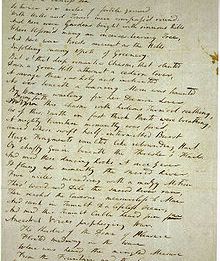 So twice six miles of fertile ground
With Walls and Towers were compass'd round:
And here were Gardens bright with sinuous Rills
Where blossom'd many an incense-bearing Tree,
And here were Forests ancient as the Hills
Enfolding sunny Spots of Greenery.
But o! that deep romantic Chasm, that slanted
Down a green Hill athwart a cedarn Cover,
A savage Place, as holy and inchanted
As e'er beneath a waning Moon was haunted
By Woman wailing for her Daemon Lover:
From forth this Chasm with hideous Turmoil seething,
As if this Earth in fast thick Pants were breathing,
A mighty Fountain momently was forc'd,
Amid whose swift half-intermitted Burst
Huge Fragments vaulted like rebounding Hail,
Or chaffy Grain beneath the Thresher's Flail.
And mid these dancing Rocks at once & ever
It flung up momently the sacred River.
Five miles meandring with a mazy Motion
Thro' Wood and Dale the sacred River ran,
Then reach'd the Caverns measureless to Man
And sank in Tumult to a lifeless Ocean;
And mid this Tumult Cubla heard from far
Ancestral Voices prophesying War.
The Shadow of the Dome of Pleasure
Floated midway on the Wave
Where was heard the mingled Measure
From the Fountain and the Cave.